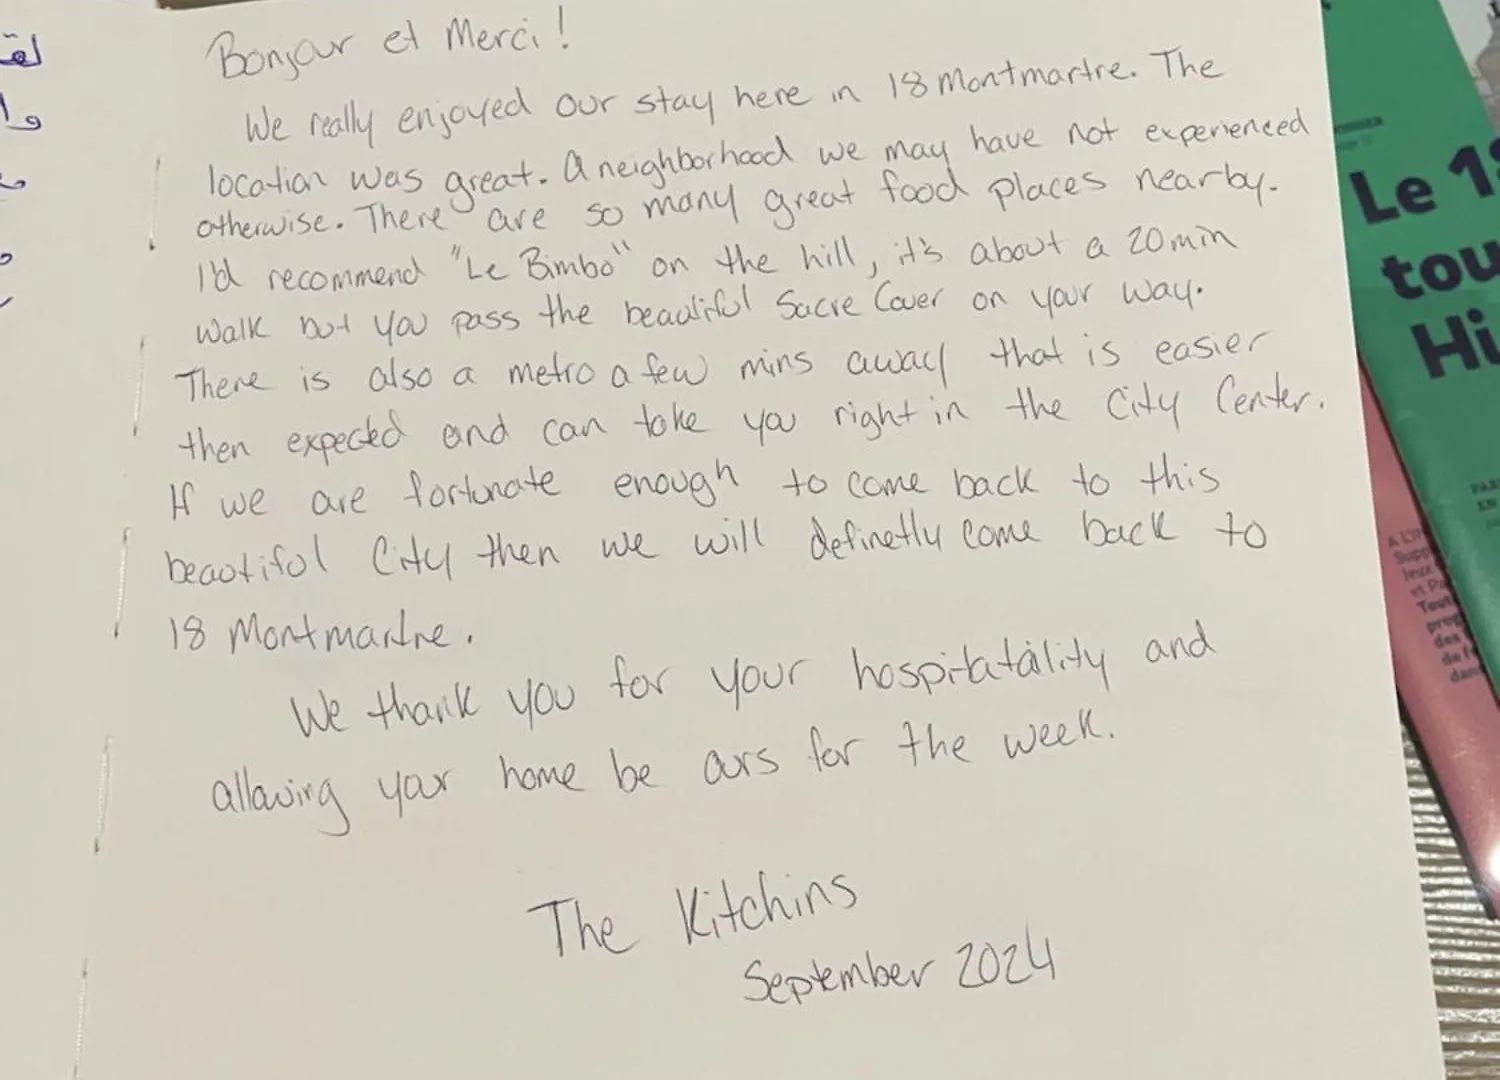 Bonjour et Merci!
We really enjoyed our stay here in 18 Montmartre. The
location was great. A neighborhood we may have not experienced
otherwise. There are so many great food places nearby.
I'd recommend "Le Bimbo" on the hill, it's about a 20 min
walk but you pass the beautiful Sacre Couer on your way.
There is also a metro a few mins away that is easier
then expected and can take you right in the City Center.
If we are fortunate enough to come back to this
beautiful City then we will definetly come back to
18 Montmartre.
We thank you for your hospitatality and
allowing your home be ours for the week.
The Kitchins
September 2024
Le 18
tou
Hi